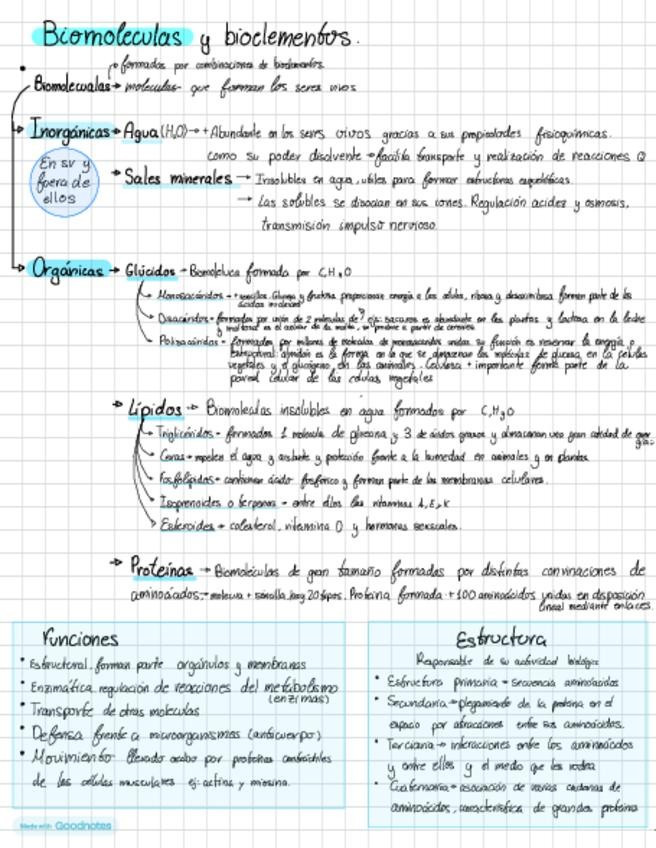 Biomoleculas y bioclementos.
formadas por combinaciones de bioelementos.
Biomolecualas → moleculas que forman los seres vivos
Inorgánicas → Agua (H₂O) → + Abundante en los seres vivos gracias a sus propiedades fisioquímicas.
como su poder disolvente → facilita transporte y realización de reacciones Q
En sv y
fuera de
ellos
Sales minerales → Insolubles en agua, utiles para formar estructuras esqueléticas
→ Las solubles se disocian en sus iones. Regulación acidez y osmosis,
transmisión impulso nervioso.
Orgánicas → Glúcidos → Biomoleluca formada por C, H, O
Monosacáridos → + sencillos. Glucosa y fructosa proporcionan energía a las células, ribosa y desoxirribosa forman parte de los
ácidos nucleicos
Disacáridos → formados por unión de 2 moleculas de ? ej: sacarosa es abundante en las plantas y lactosa en la leche
y maltosa es el azúcar de la malta, se produce a partir de cereales
Polisacáridos → formados por millones de moleculas de monosacáridos unidas su función es reservar la energía o
estructural: almidón es la forma en la que se almacenan las moléculas de glucosa en la células
vegetales y el glucógeno en los animales. Celulosa + importante forma parte de la
pared celular de las celulas vegetales
Lípidos → Biomoleculas insolubles en agua formados por C, H y O
Triglicéridos → formados 1 molecula de glicerina y 3 de ácidos grasos y almacenan una gran cantidad de
Ceras → repelen el agua y aislante y protección frente a la humedad en animales y en plantas
Fosfolípidos → contienen ácido fosfórico y forman parte de las membranas celulares.
Isoprenoides o terpenos → entre ellos las vitaminas A, E y K
Esteroides → colesterol, vitamina D y hormonas sexuales.
Proteínas → Biomoléculas de gran tamaño formadas por distintas convinaciones de
aminoácidos → molecula + sencilla, hay 20 tipos. Proteína formada + 100 aminoácidos unidas en disposición
lineal mediante enlaces.
Funciones
• Estructural. forman parte orgánulos y membranas
• Enzimática. regulación de reacciones del metabolismo
(enzimas)
• Transporte de otras moleculas
• Defensa frente a microorganismos (anticuerpo)
• Movimiento llevado acabo por proteínas contráctiles
de las células musculares ej: actina y miosina.
Estructura
Responsable de su actividad biológica
• Estructura primaria → secuencia aminoácidos
• Secundaria → plegamiento de la proteína en el
espacio por atracciones entre sus aminoácidos.
• Terciaria → interacciones entre los aminoácidos
y entre ellos y el medio que les rodea
• Cuaternaria → asociación de varias cadenas de
aminoácidos, característica de grandes proteínas
Made with Goodnotes